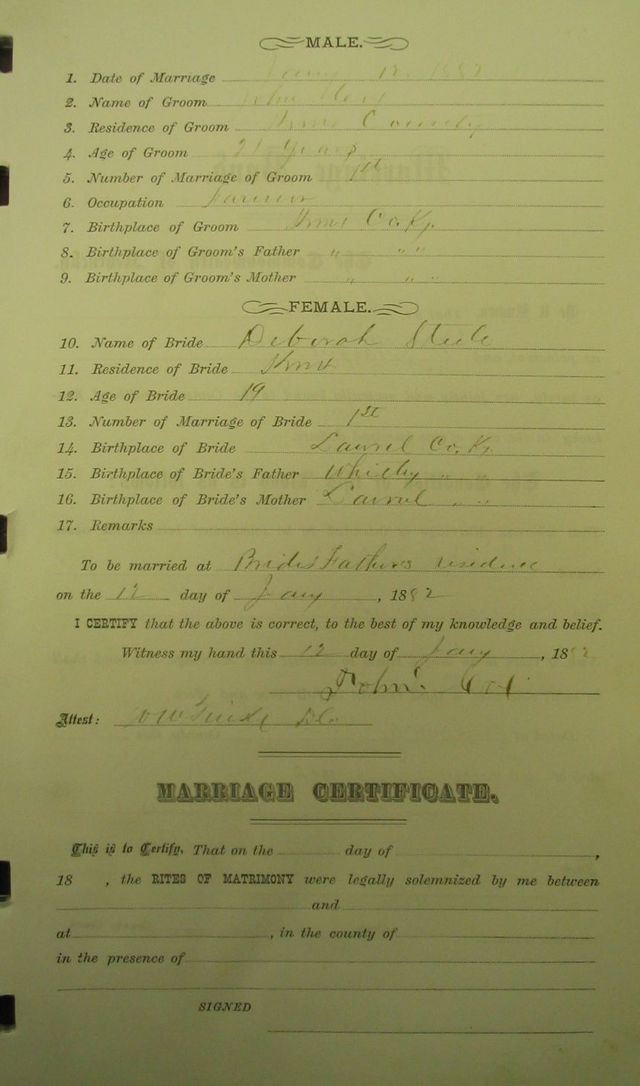 MALE.
1. Date of Marriage Jany 12 1882
2. Name of Groom John
3. Residence of Groom Knox County
4. Age of Groom 21 Years
5. Number of Marriage of Groom 1st
6. Occupation Farmer
7. Birthplace of Groom Knox Co. Ky.
8. Birthplace of Groom's Father " " "
9. Birthplace of Groom's Mother " " "
FEMALE.
10. Name of Bride Deborah Steele
11. Residence of Bride Knox
12. Age of Bride 19
13. Number of Marriage of Bride 1st
14. Birthplace of Bride Laurel Co. Ky.
15. Birthplace of Bride's Father Whitley " "
16. Birthplace of Bride's Mother Laurel " "
17. Remarks
To be married at Brides Fathers residence
on the 12 day of Jany, 1882
I CERTIFY that the above is correct, to the best of my knowledge and belief.
Witness my hand this 12 day of Jany, 1882
John
Attest:
MARRIAGE CERTIFICATE.
This is to Certify, That on the day of ,
18 , the RITES OF MATRIMONY were legally solemnized by me between
and
at , in the county of
in the presence of
SIGNED